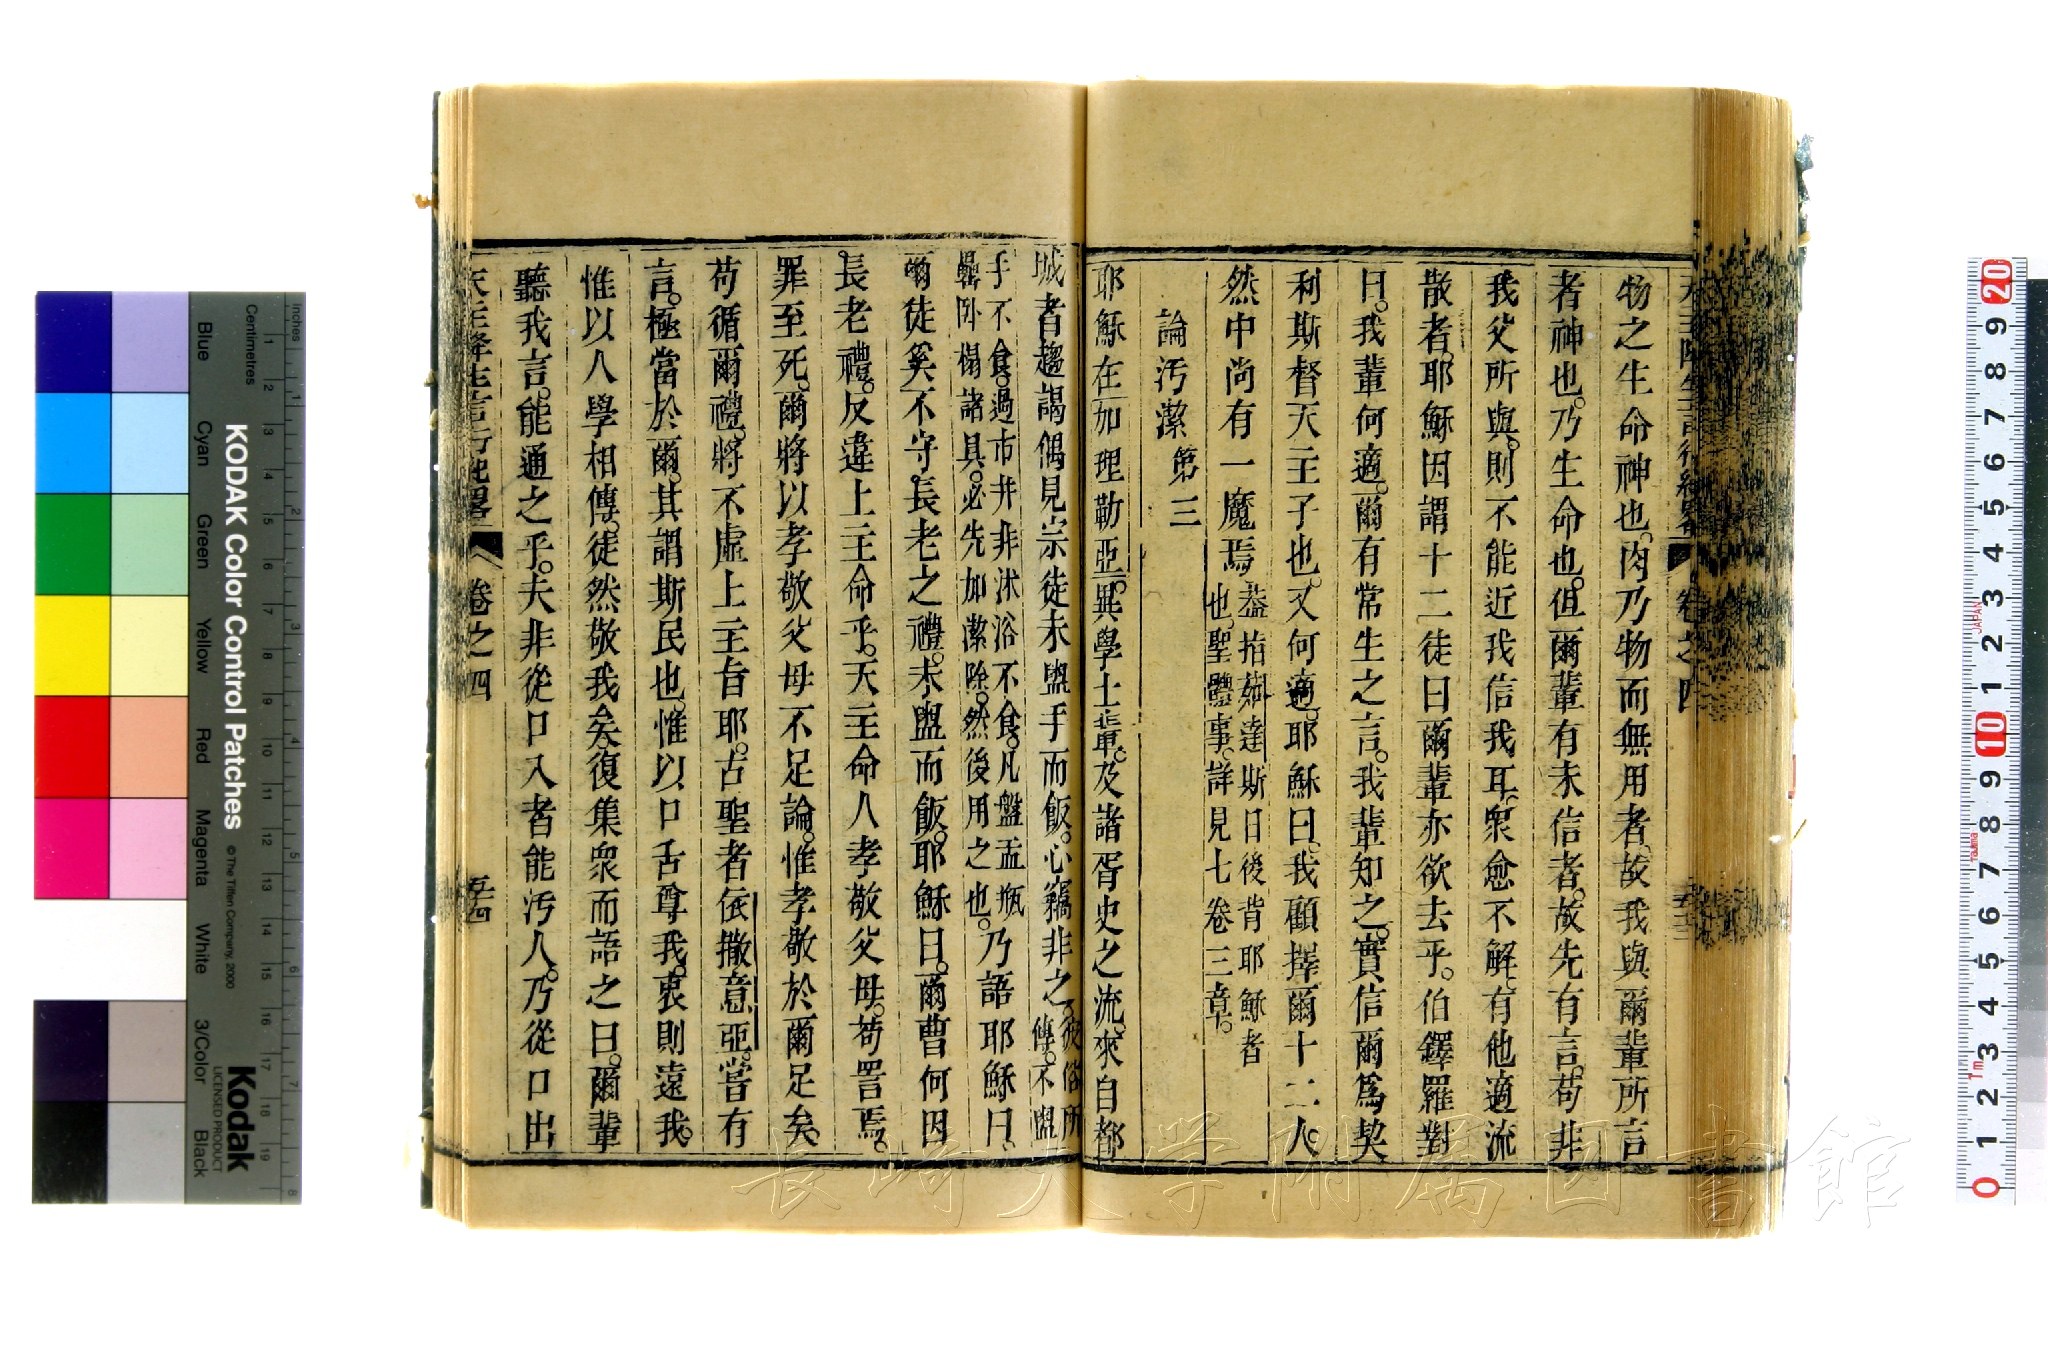 物之生命神也。肉乃物而無用者。故我與爾輩所言
者神也。乃生命也。但爾輩有未信者。故先有言。苟非
我父所與。則不能近我信我耳。衆愈不解。有他適流
散者。耶穌因謂十二徒曰爾輩亦欲去乎。伯鐸羅對
曰。我輩何適。爾有常生之言。我輩知之。實信爾爲契
利斯督天主子也。又何適。耶穌曰。我顧擇爾十二人。
然中尚有一魔焉。葢指茹達斯日後背耶穌者
也。聖體事。詳見七卷三章。
論汚潔第三
耶穌在加理勒亞。異學士輩。及諸胥史之流。來自都
城者趨謁偶見宗徒未盥手而飯。心竊非之。彼俗所
傳。不盥
手不食。過市井非沐浴不食。凡盤盂瓶
罍臥榻諸具。必先加潔除。然後用之也。乃語耶穌曰。
爾徒奚不守。長老之禮。未盥而飯。耶穌曰。爾曹何因
長老禮。反違上主命乎。天主命人孝敬父母。苟詈焉。
罪至死。爾將以孝敬父母不足論。惟孝敬於爾足矣。
苟循爾禮。將不虛上主旨耶。古聖者依撒意亞。嘗有
言。極當於爾。其謂斯民也。惟以口舌尊我。衷則遠我。
惟以人學相傳。徒然敬我矣。復集衆而語之曰。爾輩
聽我言。能通之乎。夫非從口入者能汚人。乃從口出
天主降生言行紀畧 卷之四 五十四
KODAK Color Control Patches
© The Tiffen Company, 2000
Kodak
LICENSED PRODUCT
Inches
Centimetres
Blue
Cyan
Green
Yellow
Red
Magenta
White
3/Color
Black
JAPAN
長崎大学附属図書館